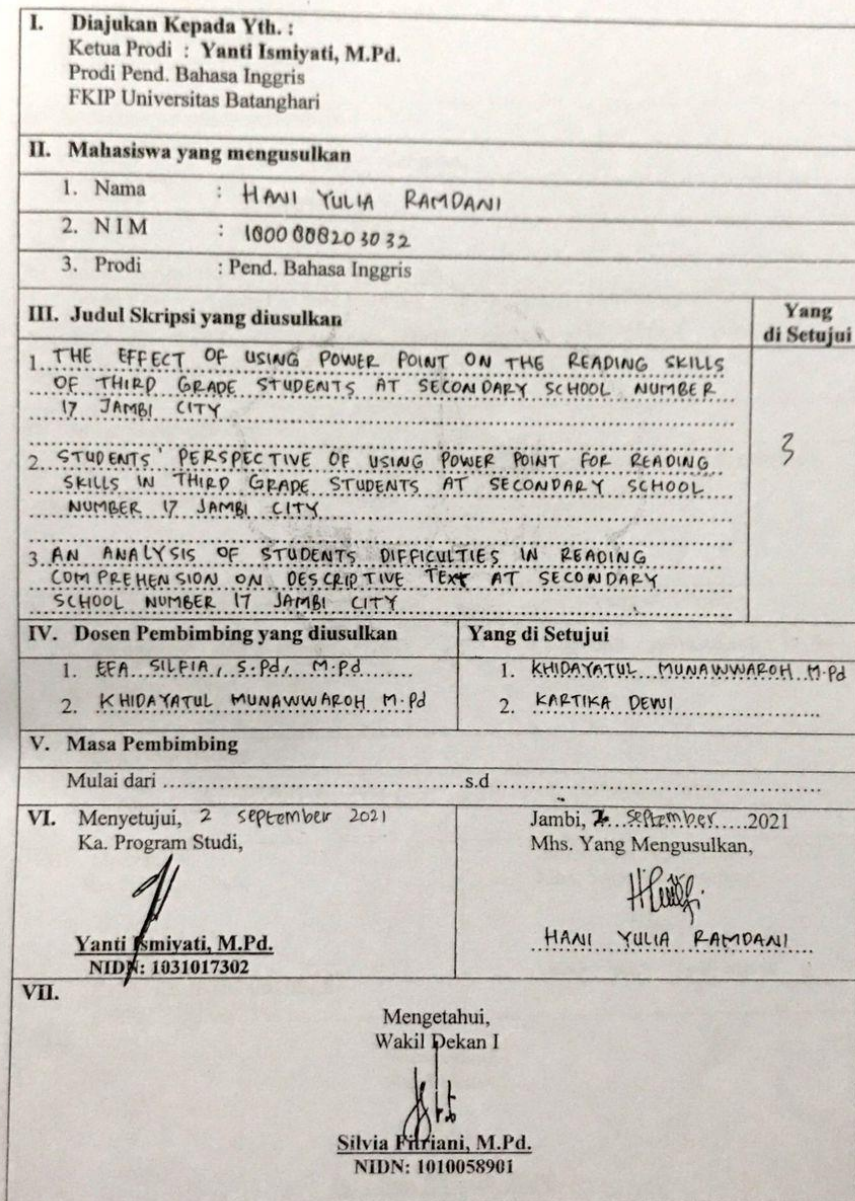 I. Diajukan Kepada Yth. :
Ketua Prodi : Yanti Ismiyati, M.Pd.
Prodi Pend. Bahasa Inggris
FKIP Universitas Batanghari
II. Mahasiswa yang mengusulkan
1. Nama : HANI YULIA RAMDANI
2. N I M : 1800888203032
3. Prodi : Pend. Bahasa Inggris
III. Judul Skripsi yang diusulkan
Yang
di Setujui
1. THE EFFECT OF USING POWER POINT ON THE READING SKILLS
OF THIRD GRADE STUDENTS AT SECONDARY SCHOOL NUMBER
17 JAMBI CITY
2. STUDENTS' PERSPECTIVE OF USING POWER POINT FOR READING
SKILLS IN THIRD GRADE STUDENTS AT SECONDARY SCHOOL
NUMBER 17 JAMBI CITY
3
3. AN ANALYSIS OF STUDENTS DIFFICULTIES IN READING
COMPREHENSION ON DESCRIPTIVE TEXT AT SECONDARY
SCHOOL NUMBER 17 JAMBI CITY
IV. Dosen Pembimbing yang diusulkan
1. EFA SILFIA, S.Pd, M.Pd
2. KHIDAYATUL MUNAWWAROH M.Pd
Yang di Setujui
1. KHIDAYATUL MUNAWWAROH M.Pd
2. KARTIKA DEWI
V. Masa Pembimbing
Mulai dari ........................................s.d ........................................
VI. Menyetujui, 2 September 2021
Ka. Program Studi,
Yanti Ismiyati, M.Pd.
NIDN: 1031017302
Jambi, 2 September 2021
Mhs. Yang Mengusulkan,
HANI YULIA RAMDANI
VII.
Mengetahui,
Wakil Dekan I
Silvia Fitriani, M.Pd.
NIDN: 1010058901